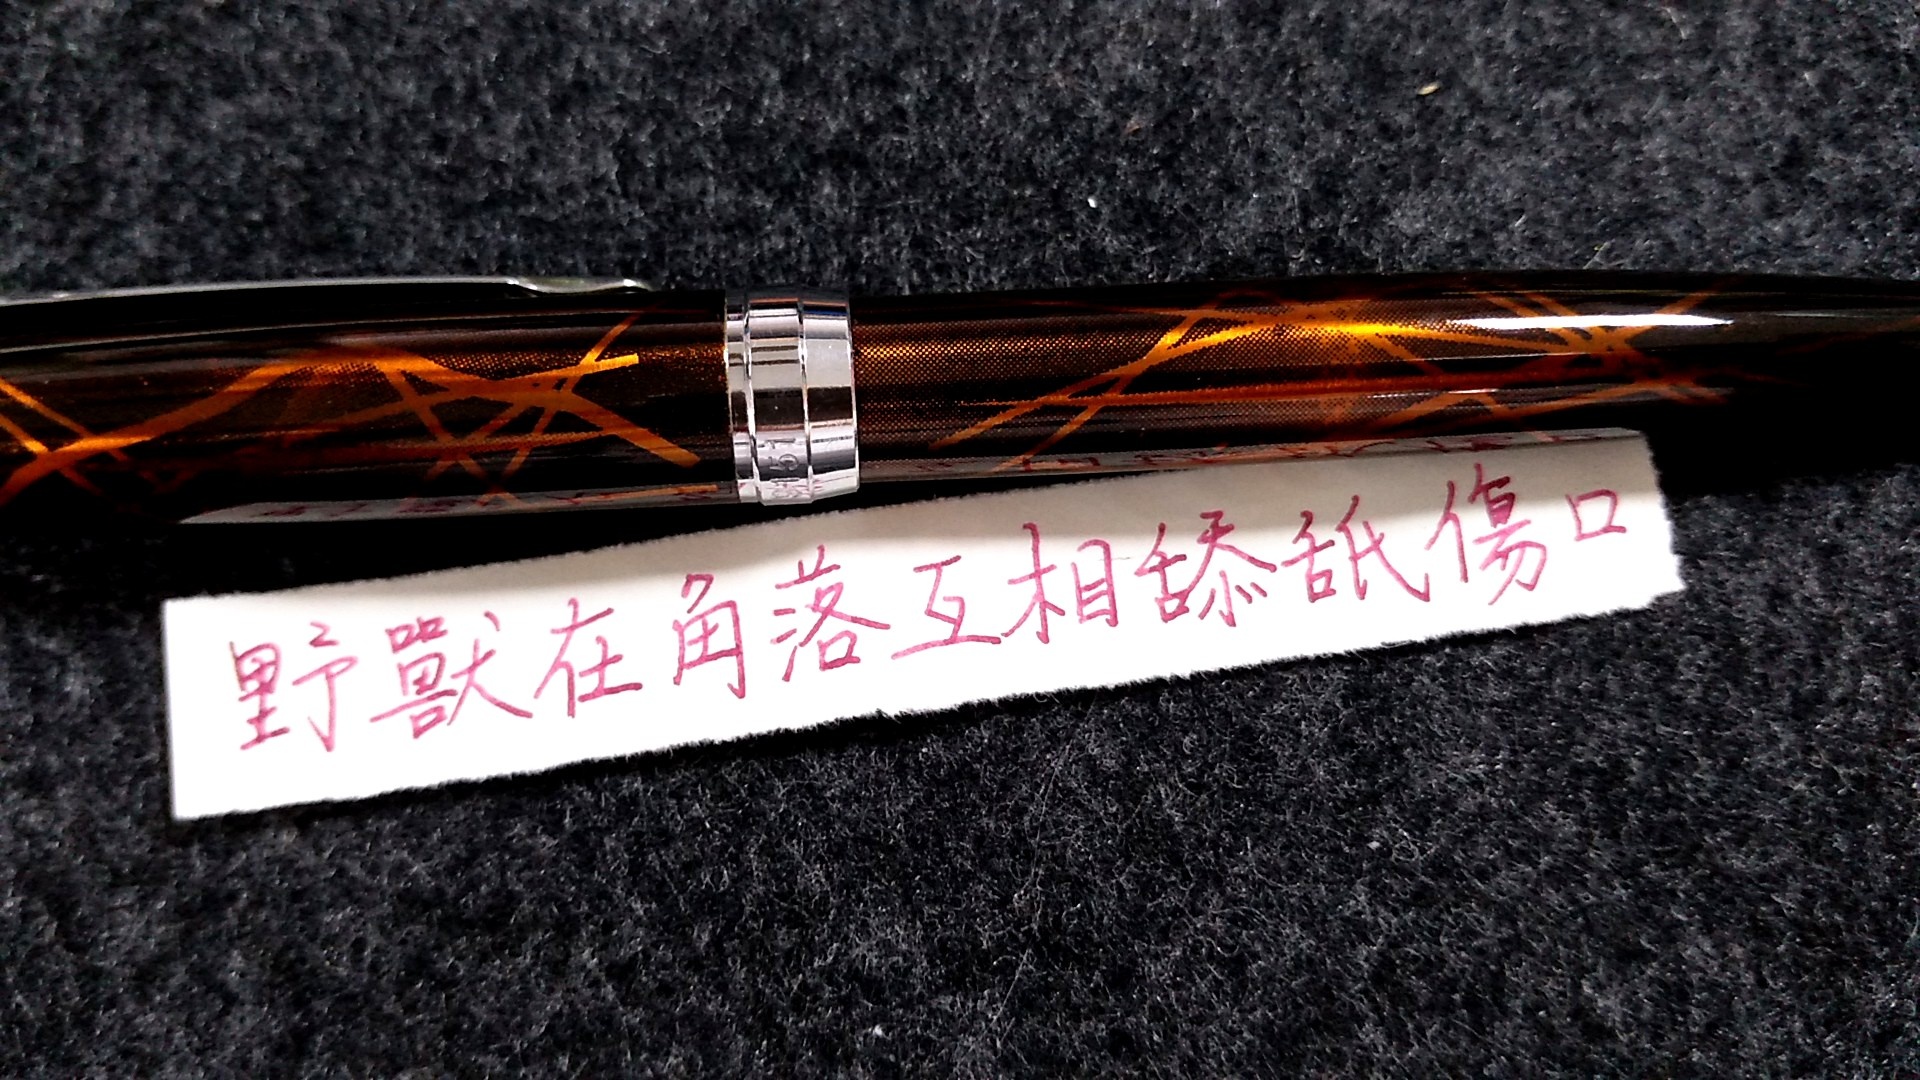 野獸在角落互相舔舐傷口